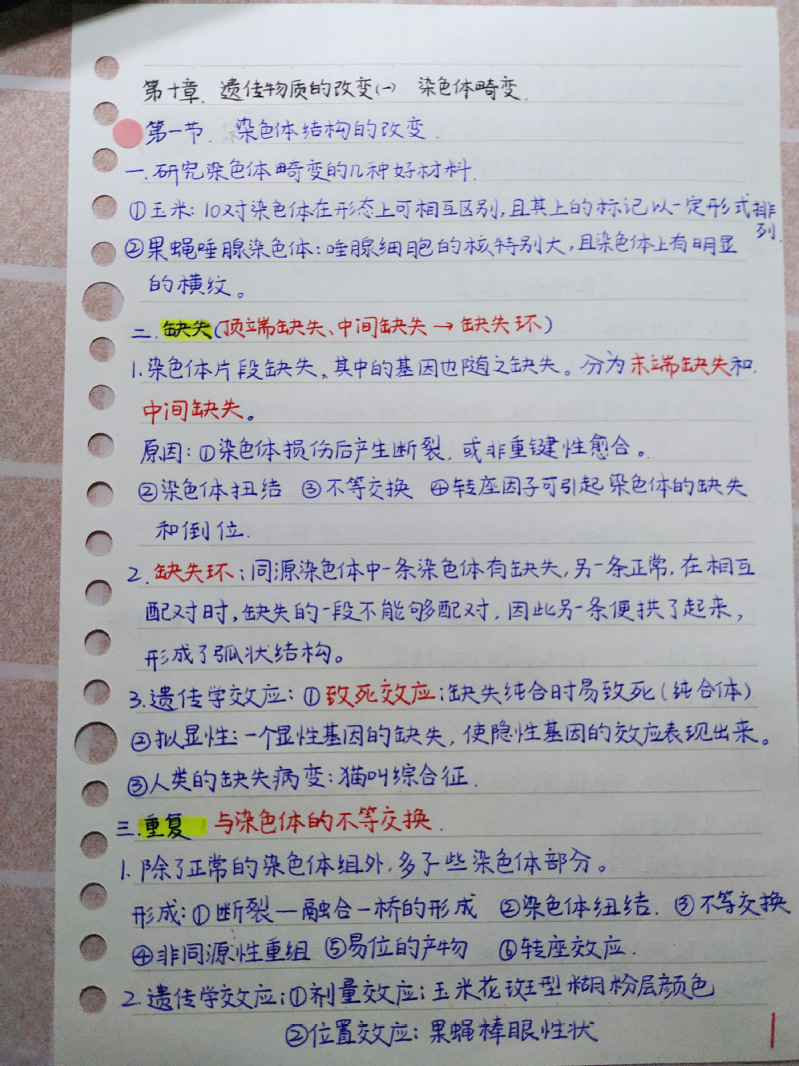 第十章. 遗传物质的改变(一) 染色体畸变.
第一节. 染色体结构的改变.
一. 研究染色体畸变的几种好材料.
①玉米: 10对染色体在形态上可相互区别, 且其上的标记以一定形式排列.
②果蝇唾腺染色体: 唾腺细胞的核特别大, 且染色体上有明显
的横纹。
二. 缺失(顶端缺失、中间缺失→缺失环)
1. 染色体片段缺失, 其中的基因也随之缺失。分为末端缺失和.
中间缺失。
原因: ①染色体损伤后产生断裂, 或非重键性愈合。
②染色体扭结 ③不等交换 ④转座因子可引起染色体的缺失
和倒位.
2. 缺失环: 同源染色体中一条染色体有缺失, 另一条正常, 在相互
配对时, 缺失的一段不能够配对, 因此另一条便拱了起来,
形成了弧状结构。
3. 遗传学效应: ①致死效应: 缺失纯合时易致死(纯合体)
②拟显性: 一个显性基因的缺失, 使隐性基因的效应表现出来。
③人类的缺失病变: 猫叫综合征.
三. 重复 与染色体的不等交换.
1. 除了正常的染色体组外, 多了些染色体部分。
形成: ①断裂—融合—桥的形成 ②染色体纽结. ③不等交换
④非同源性重组 ⑤易位的产物 ⑥转座效应.
2. 遗传学效应: ①剂量效应: 玉米花斑型糊粉层颜色
②位置效应: 果蝇棒眼性状